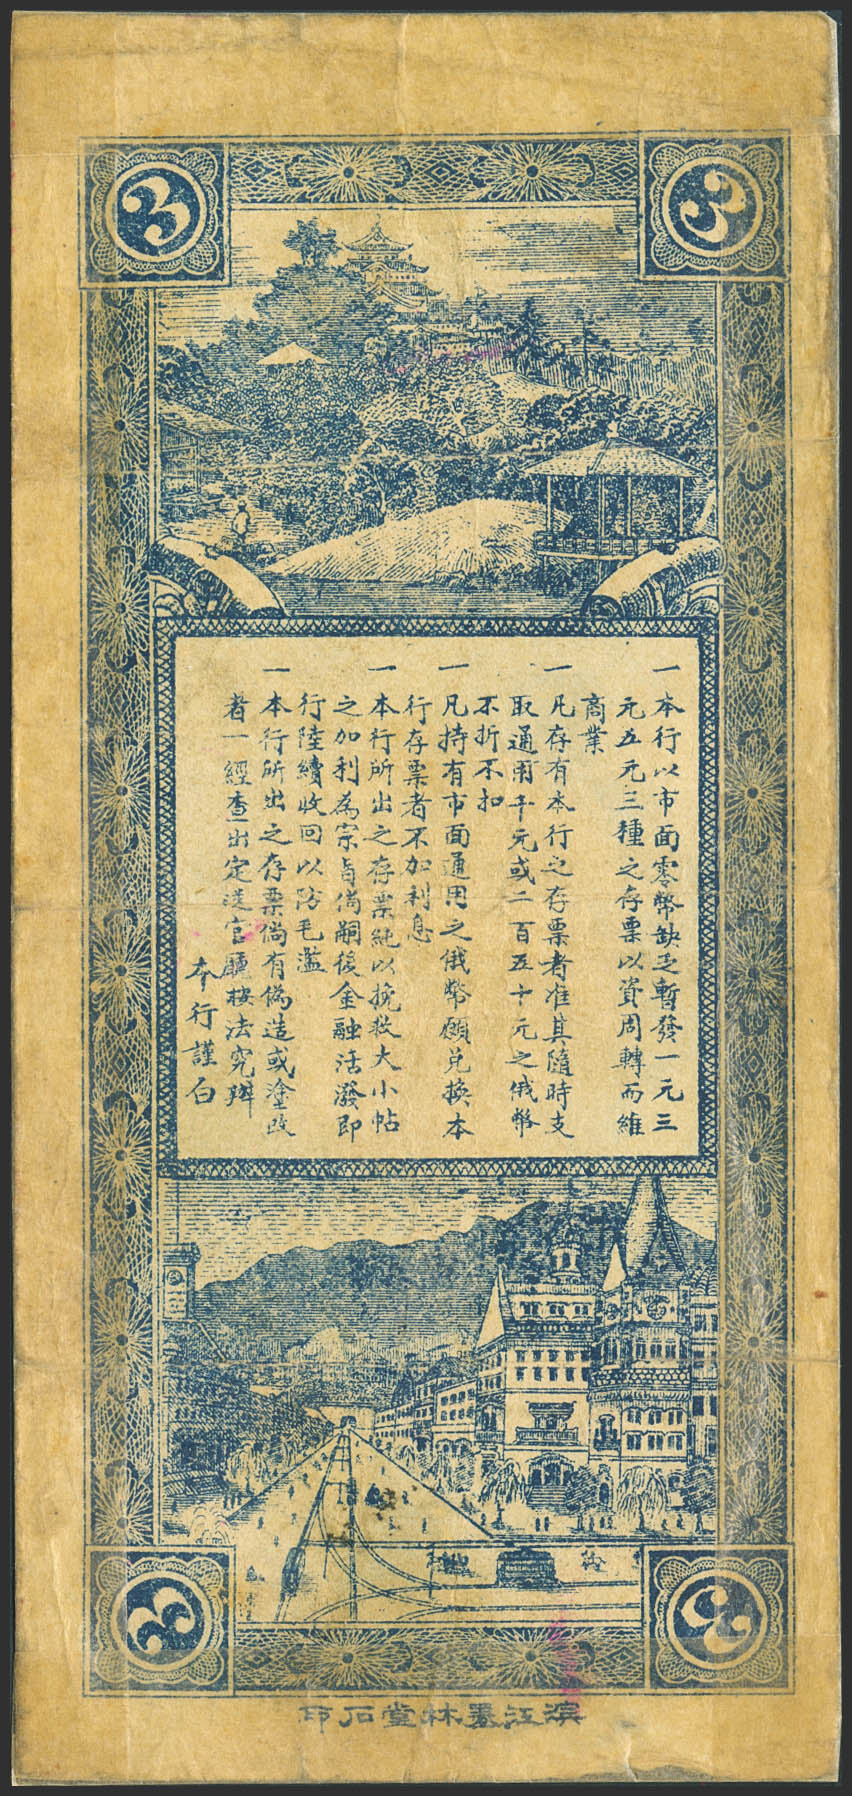 3
3
一本行以市面零幣缺乏暫發一元三
元五元三種之存票以資周轉而維
商業
一凡存有本行之存票者准其隨時支
取通用千元或二百五十元之俄幣
不折不扣
一凡持有市面通用之俄幣願兌換本
行存票者不加利息
一本行所出之存業純以挽救大小帖
之加利為宗旨倘嗣後金融活潑即
行陸續收回以防毛濫
一本行所出之存票倘有偽造或塗改
者一經查出定送官廳按法究辦
本行謹白
3
3
濱江墨林堂石印